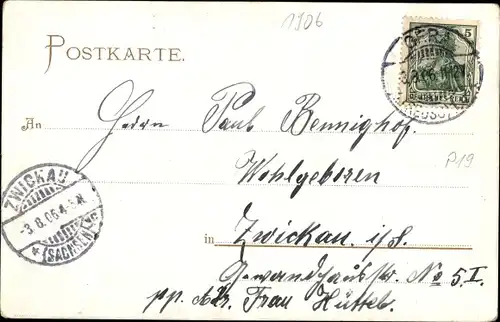 1906
POSTKARTE.
GERA
5
3.8.06.
An Herrn Paul Bennighof.
Wohlgeboren
P19
ZWICKAU
-3.8.06.4-5N.
*(SACHSEN)
in Zwickau i/S.
Gewandhausstr. No 5 I.
pp. Adr. Frau Hüttel.